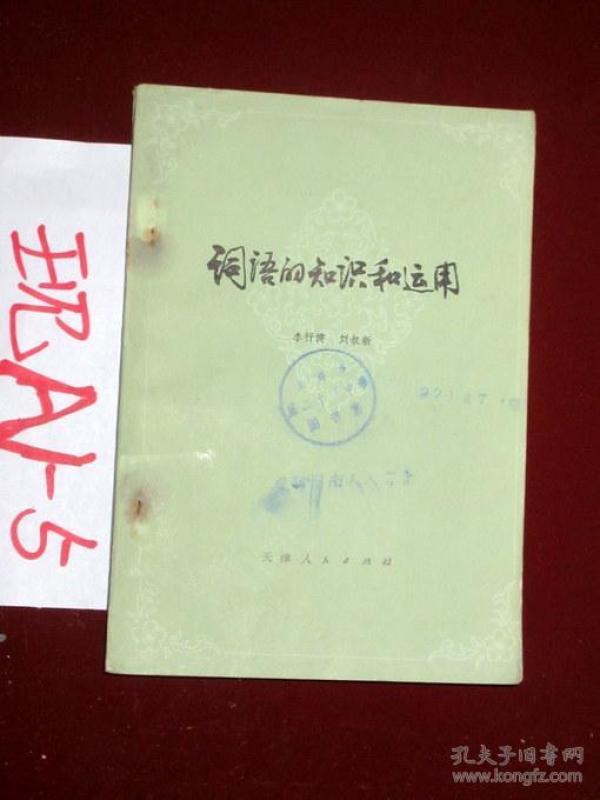 词语的知识和运用
李行健 刘叔新
天津人民出版社
现A1-5
孔夫子旧书网
www.kongfz.com